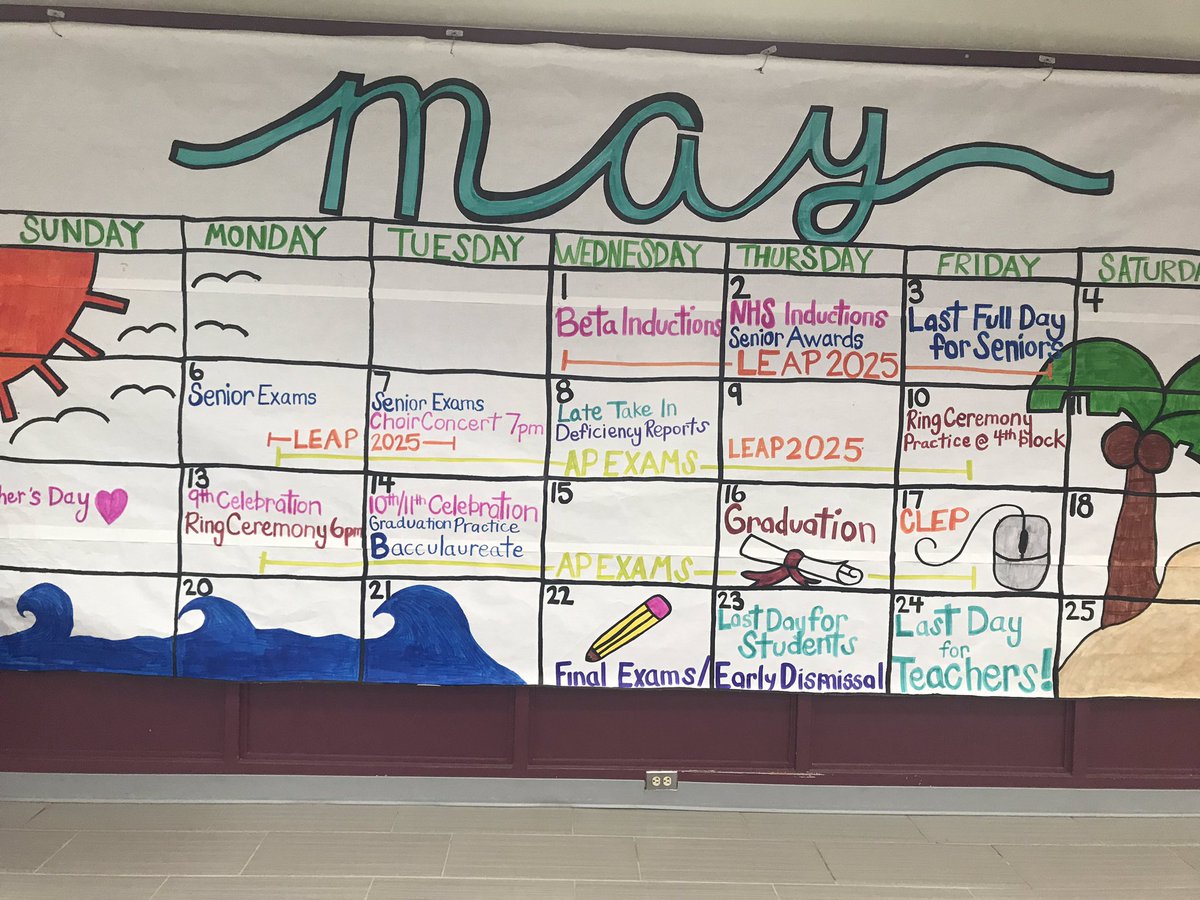 may
SUNDAY MONDAY TUESDAY WEDNESDAY THURSDAY FRIDAY SATURDA
1
Beta Inductions
2
NHS Inductions
Senior Awards
LEAP 2025
3
Last Full Day
for Seniors
4
6
Senior Exams
LEAP
7
Senior Exams
Choir Concert 7pm
2025
8
Late Take In
Deficiency Reports
AP EXAMS
9
LEAP 2025
10
Ring Ceremony
Practice @ 4th block
11
her's Day
13
9th Celebration
Ring Ceremony 6pm
14
10th/11th Celebration
Graduation Practice
Bacculaureate
15
AP EXAMS
16
Graduation
17
CLEP
18
20
21
22
Final Exams/
23
Last Day for
Students
Early Dismissal
24
Last Day
for
Teachers!
25